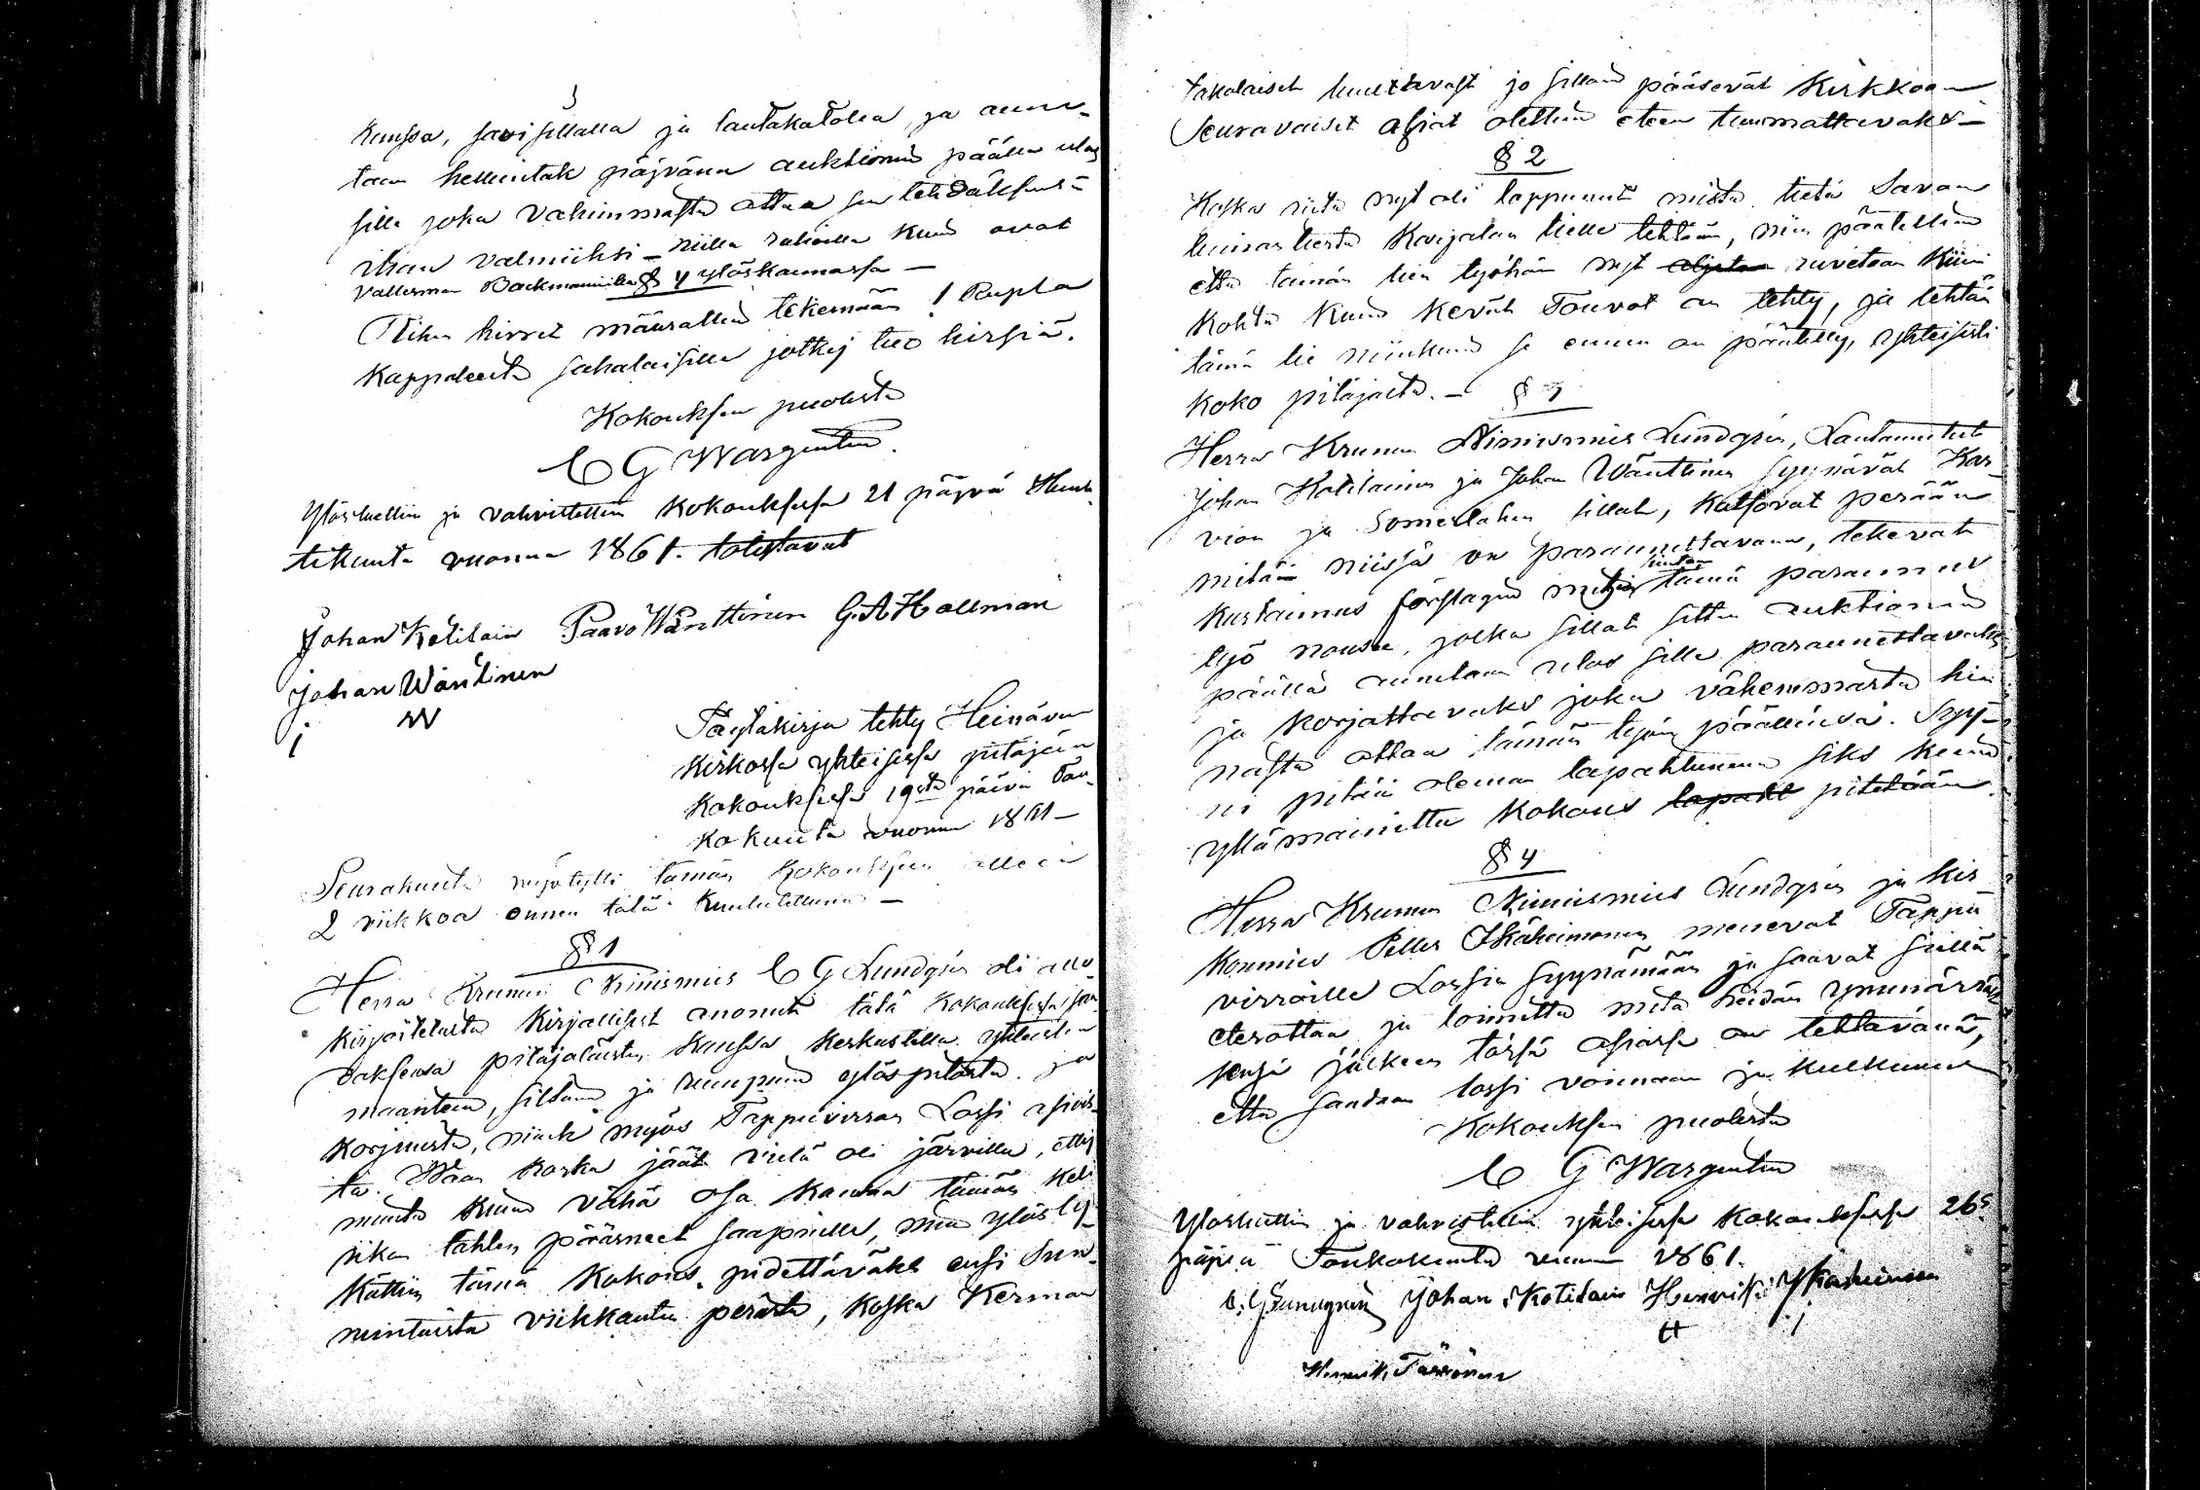 kanssa, savisillalla ja lautakatolla, ja annu-
taan helluntak päjvänä auktionin päällä ulos
sille joka vähimmästä ottaa sen tehdäksens
ihan valmiiksi – niillä rahoilla kuin ovat
Vallesman Backmannilla § 4 ylöskannossa –
Riihen hirret määrättiin tekemään 1 Rupla
kappaleesta sahalaisille jotka tuo hirsiä.
Kokouksen puolesta
C G Wargentin.
Ylösluettiin ja vahvistettiin kokouksessa 21 päjvä Huh-
tikuuta vuonna 1861. totistavat
Johan Kotilain Paavo Wänttinen G. A Hallman
Johan Wäntinen
Pöytäkirja tehty Heinäven
kirkossa yhteisessä pitäjän
kokouksessa 19sta päivä Tou-
kokuuta vuonna 1861 –
Seurakunta myötytti tämän kokouksen olleen
2 viikkoa ennen tätä kuulutettuna –
§ 1
Herra Kruunun Nimismies C G Lundgrén oli allo-
kirjoitetusta kirjallisest anonut tätä kokouksessa saa-
daksensa pitäjäläisten kanssa keskustella yhteisten
maantein, siltain ja rumpuin ylöspidosta ja
korjuusta, niinkk myös Tappuvirran Lossi asias-
ta. Waan koska jäät vielä oli järvillä, ettej
muuta kuin vähä osa kansaa tämän keli
rikon tähden päässeet saapuville, niin ylös ly-
kättiin tämä kokous pidettäväks ensi Sun-
nuntaista viikkautta perästä, koska Kerman
takalaiset luultavasti jo silloin pääsevät kirkkoon
Seuravaiset asiat otettiin eteen tuumattavaks –
§ 2
Koska riita nyt oli loppunut mistä tietä Savon
linnan tiestä Karjalan tielle tehtään, niin päätettiin
että tämän tien työhön nyt aljetaan ruvetaan kiini
kohta kuin kevät Touvot on tehty, ja tehtän
tämä tie niinkuin se ennen on päätetty, yhteisesti
koko pitäjästä. –
§ 3
Herra Kruunun Nimismies Lundgrén, Lautamiehet
Johan Kotilainen ja Johan Wänttinen syynävät Kar-
vion ja Somerlahen sillat, katsovat perään
mitä niissä on parannettavana, tekevät
kustannus förslagin mihin hintaan tämä parannus
työ nousee, jotka sillat sitten auktionin
päällä annetaan ulos sille parannettavaks
ja korjattavaks joka vähemmästä hin-
nasta ottaa tämän työn päällensä. Syy-
ni pitää oleman tapahtununna siks kuin
ylämainittu kokous tapaht pitetään.
§ 4
Herra Kruunun Nimismies Lundgrén ja kir
konmies Petter Ikäheimonen menevät Tappu
virroille Lossia syynämään ja saavat siellä
eteottaa ja toimittaa mitä heidän ymmärräk-
sensä jälkeen tässä asiassa on tehtävänä,
että saadaan lossi voimaan ja kulkuun
Kokouksen puolesta
C G Wargentin
Ylösluettiin ja vahvistettiin yhteisessä kokouksessa 26s
päjvä Toukokuuta vuonna 1861.
C. G Lundgrén Johan Kotilain Henrik Ikäheimon
Henrik Tärvönen